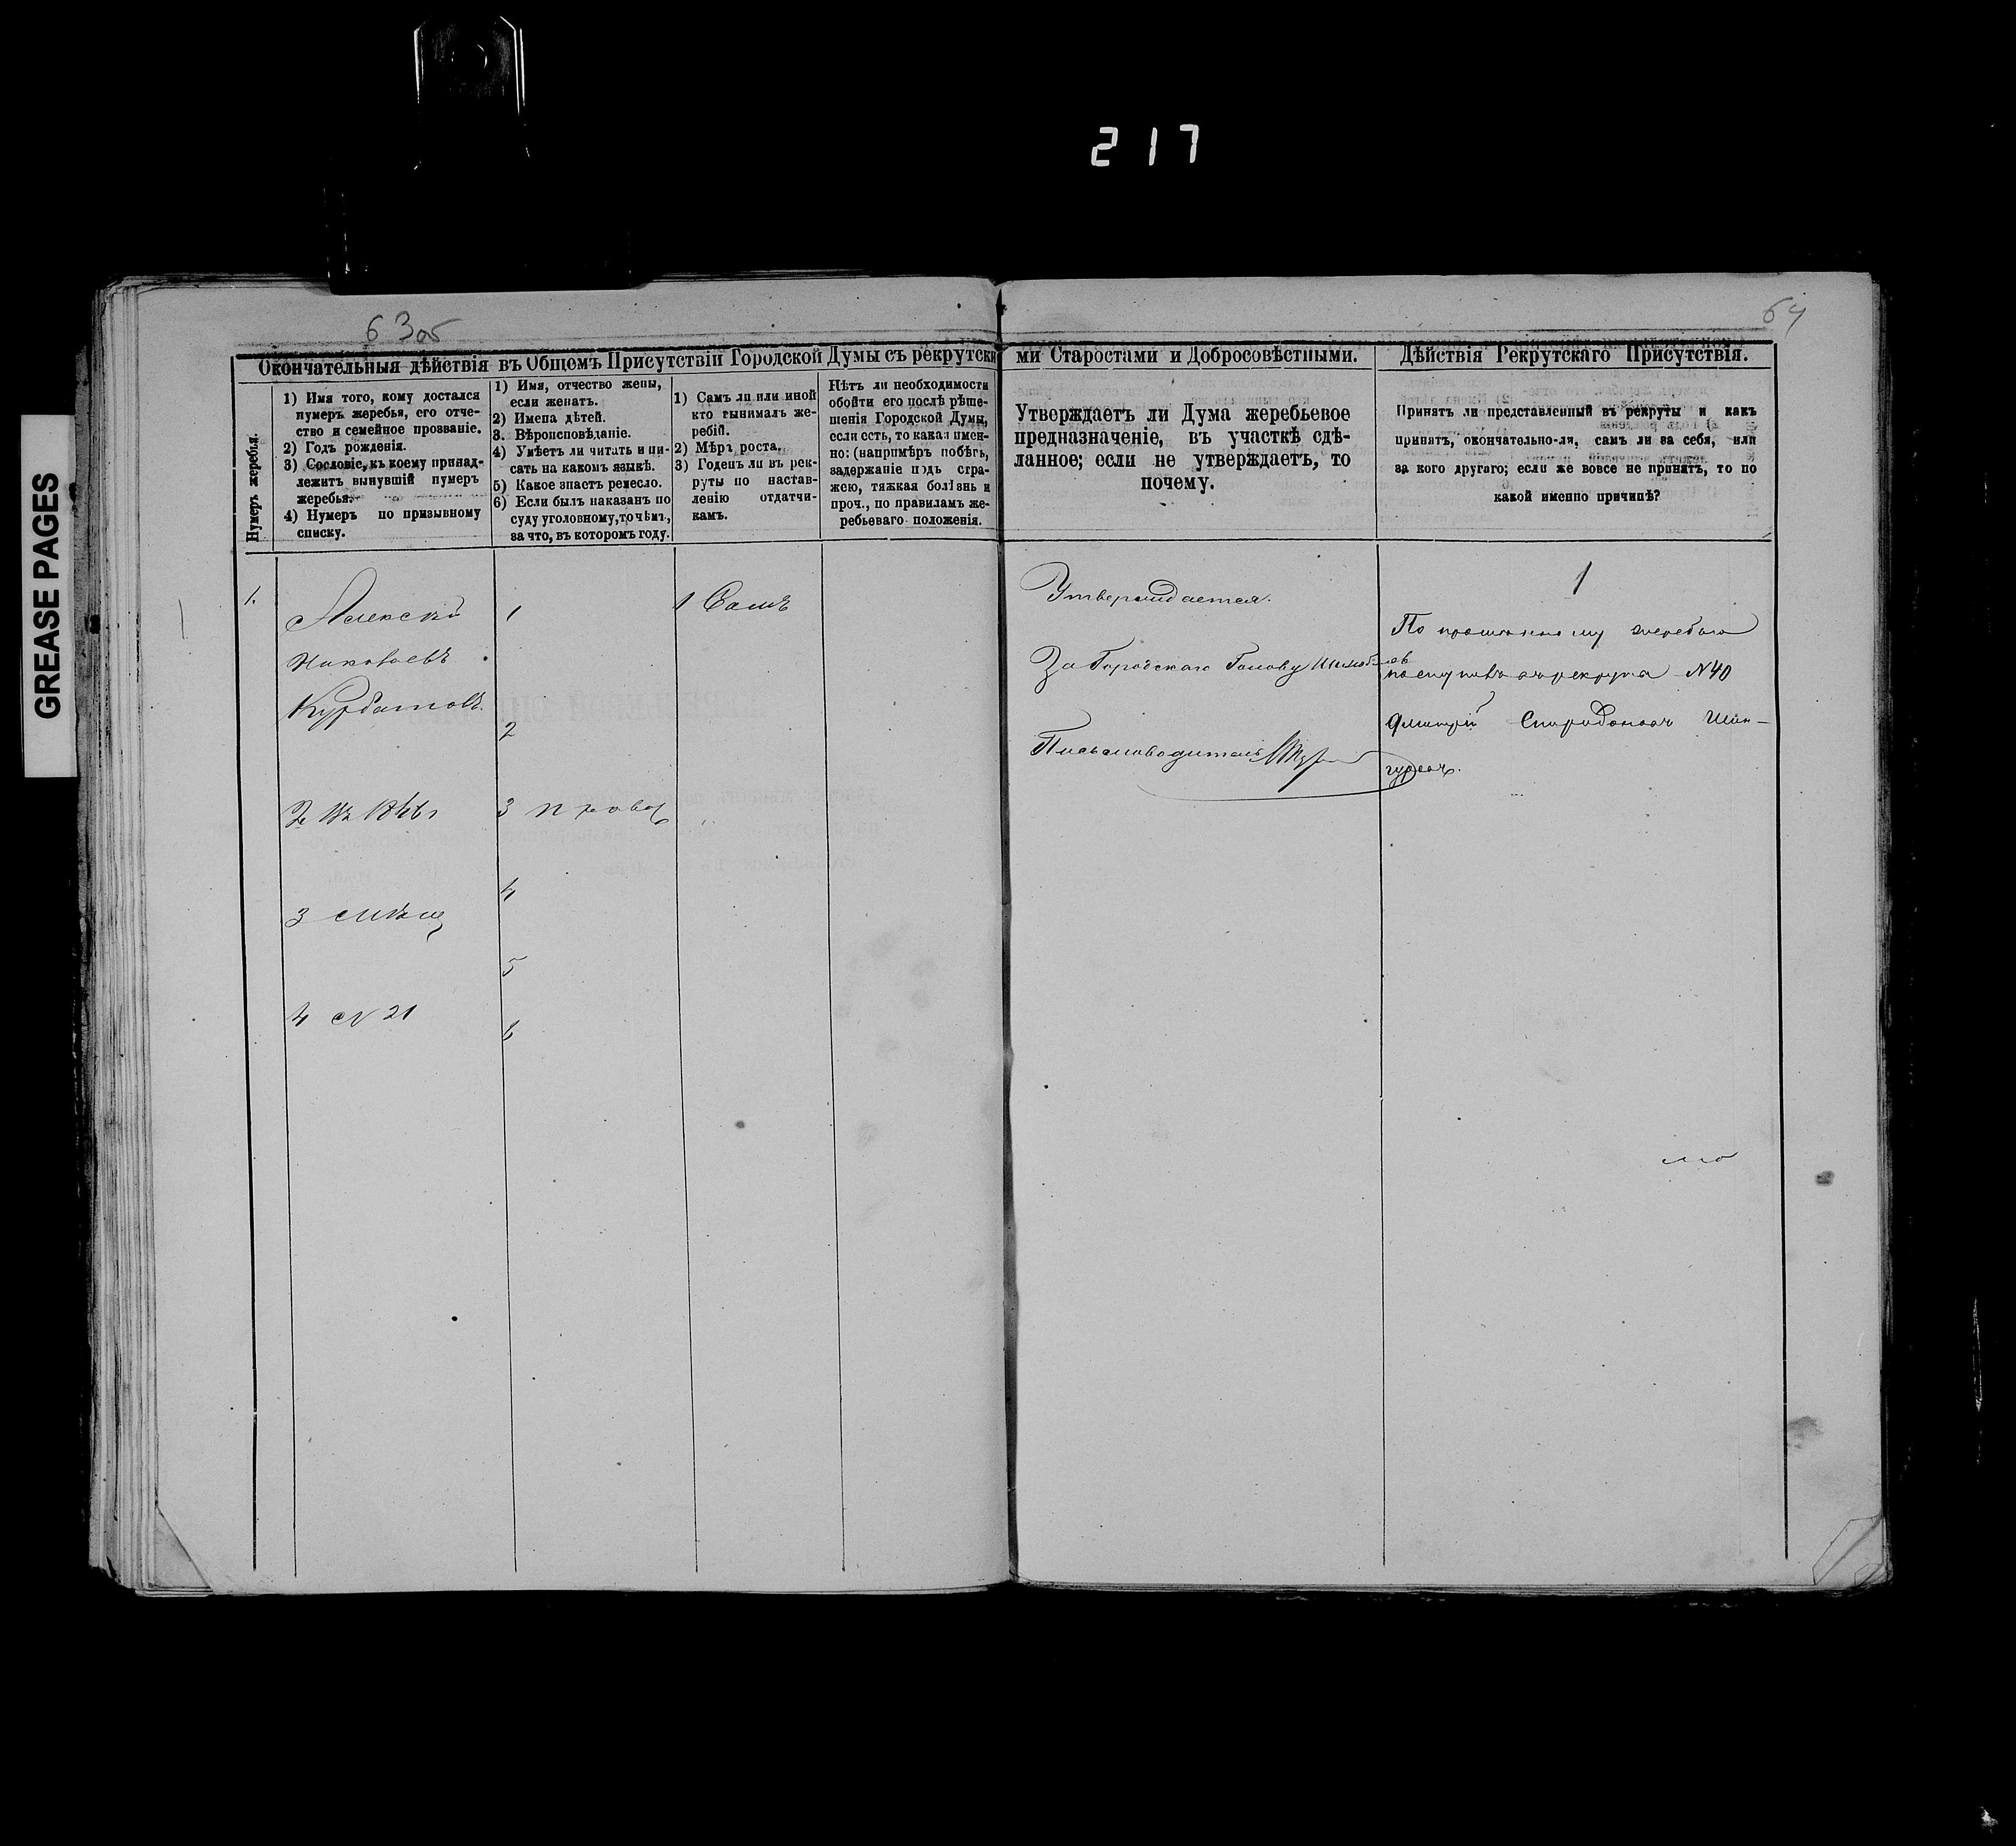 217
GREASE PAGES
63 об
64
Окончательныя дѣйствія въ Общемъ Присутствіи Городской Думы съ рекрутски
ми Старостами и Добросовѣстными.
Дѣйствія Рекрутскаго Присутствія.
Нумеръ жеребья.
1) Имя того, кому достался
нумеръ жеребья, его отче-
ство и семейное прозваніе.
2) Годъ рожденія.
3) Сословіе, къ коему принад-
лежитъ вынувшій нумеръ
жеребья.
4) Нумеръ по призывному
списку.
1) Имя, отчество жены,
если женатъ.
2) Имена дѣтей.
3. Вѣроисповѣданіе.
4) Умѣетъ ли читать и пи-
сать на какомъ языкѣ.
5) Какое знаетъ ремесло.
6) Если былъ наказанъ по
суду уголовному, то чѣмъ,
за что, въ которомъ году.
1) Самъ ли или иной
кто вынималъ же-
ребій.
2) Мѣра роста.
3) Годенъ ли въ рек-
руты по настав-
ленію отдатчи-
камъ.
Нѣтъ ли необходимости
обойти его послѣ рѣше-
шенія Городской Думы,
если есть, то какая имен-
но: (напримѣръ побѣгъ,
задержаніе подъ стра-
жею, тяжкая болѣзнь и
проч., по правиламъ же-
ребьеваго положенія.
Утверждаетъ ли Дума жеребьевое
предназначеніе, въ участкѣ сдѣ-
ланное; если не утверждаетъ, то
почему.
Принятъ ли представленный въ рекруты и какъ
принятъ, окончательно-ли, самъ ли за себя, или
за кого другаго; если же вовсе не принятъ, то по
какой именно причинѣ?
1.
Алексѣй
Николаевъ
Курбатовъ
3 мѣщ
4 N 21
1
2
3 правос
4
5
6
1 Самъ
Утверждается.
За Городскаго Голову
Письмоводитель
1
По жеребью
N 40
Дмитрій Спиридоновъ